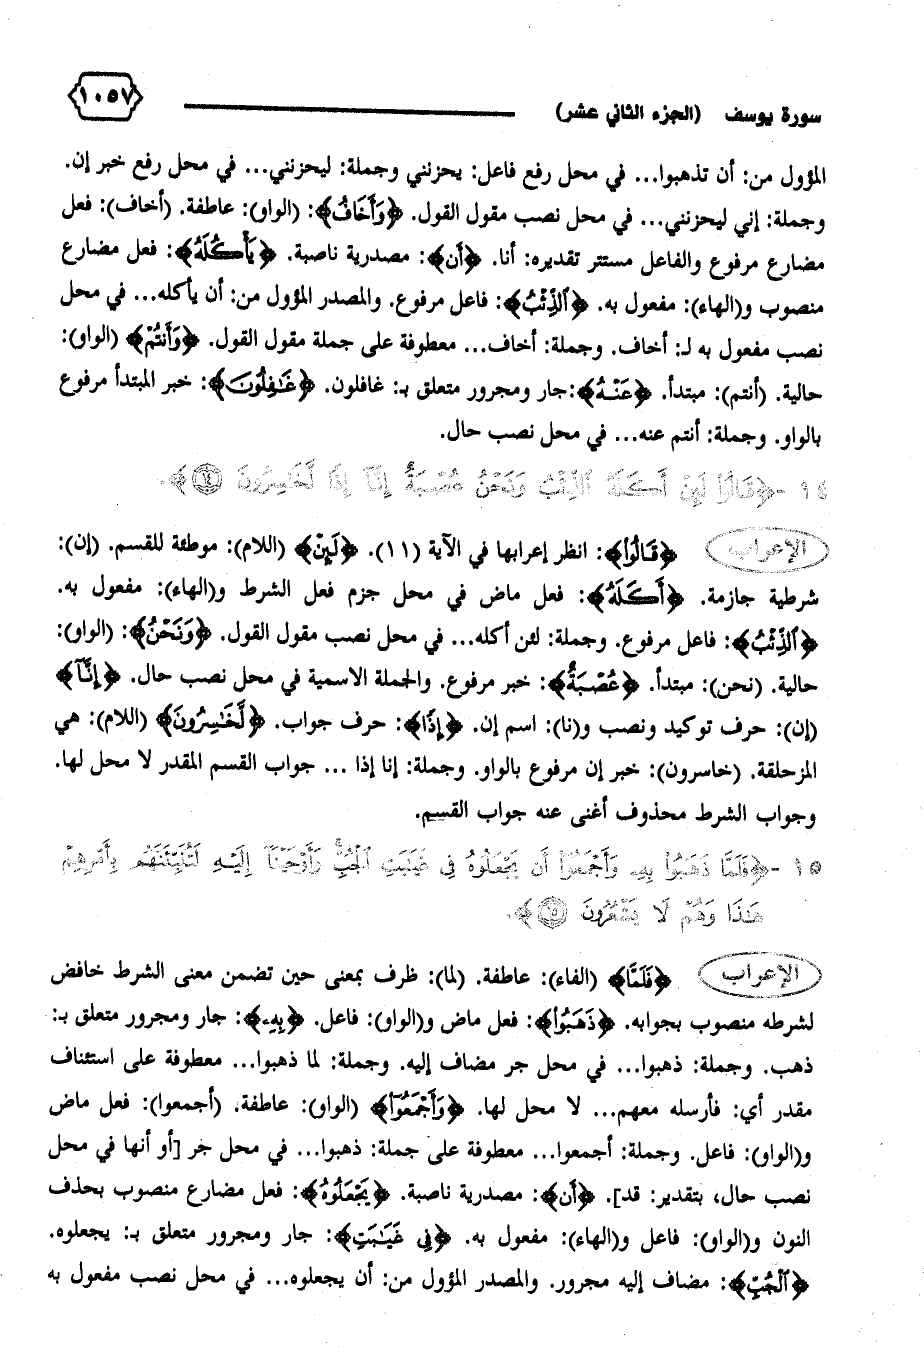 سورة يوسف (الجزء الثاني عشر) ١٠٥٧
المؤول من: أن تذهبوا... في محل رفع فاعل: يحزنني وجملة: ليحزنني... في محل رفع خبر إن.
وجملة: إني ليحزنني... في محل نصب مقول القول. ﴿وَأَخَافُ﴾: (الواو): عاطفة. (أخاف): فعل
مضارع مرفوع والفاعل مستتر تقديره: أنا. ﴿أَن﴾: مصدرية ناصبة. ﴿يَأْكُلَهُ﴾: فعل مضارع
منصوب و(الهاء): مفعول به. ﴿ٱلذِّئْبُ﴾: فاعل مرفوع. والمصدر المؤول من: أن يأكله... في محل
نصب مفعول به لـ: أخاف. وجملة: أخاف... معطوفة على جملة مقول القول. ﴿وَأَنتُمْ﴾ (الواو):
حالية. (أنتم): مبتدأ. ﴿عَنْهُ﴾:جار ومجرور متعلق بـ: غافلون. ﴿غَٰفِلُونَ﴾: خبر المبتدأ مرفوع
بالواو. وجملة: أنتم عنه... في محل نصب حال.
١٤ -﴿قَالُوا۟ لَئِنْ أَكَلَهُ ٱلذِّئْبُ وَنَحْنُ عُصْبَةٌ إِنَّآ إِذًا لَّخَٰسِرُونَ ١٤﴾.
الإعراب ﴿قَالُوا۟﴾: انظر إعرابها في الآية (١١). ﴿لَئِنْ﴾ (اللام): موطئة للقسم. (إن):
شرطية جازمة. ﴿أَكَلَهُ﴾: فعل ماض في محل جزم فعل الشرط و(الهاء): مفعول به.
﴿ٱلذِّئْبُ﴾: فاعل مرفوع. وجملة: لئن أكله... في محل نصب مقول القول. ﴿وَنَحْنُ﴾: (الواو):
حالية. (نحن): مبتدأ. ﴿عُصْبَةٌ﴾: خبر مرفوع. والجملة الاسمية في محل نصب حال. ﴿إِنَّآ﴾
(إن): حرف توكيد ونصب و(نا): اسم إن. ﴿إِذًا﴾: حرف جواب. ﴿لَّخَٰسِرُونَ﴾ (اللام): هي
المزحلقة. (خاسرون): خبر إن مرفوع بالواو. وجملة: إنا إذا ... جواب القسم المقدر لا محل لها.
وجواب الشرط محذوف أغنى عنه جواب القسم.
١٥ -﴿فَلَمَّا ذَهَبُوا۟ بِهِۦ وَأَجْمَعُوٓا۟ أَن يَجْعَلُوهُ فِى غَيَٰبَتِ ٱلْجُبِّ وَأَوْحَيْنَآ إِلَيْهِ لَتُنَبِّئَنَّهُم بِأَمْرِهِمْ
هَٰذَا وَهُمْ لَا يَشْعُرُونَ ١٥﴾.
الإعراب ﴿فَلَمَّا﴾ (الفاء): عاطفة. (لما): ظرف بمعنى حين تضمن معنى الشرط خافض
لشرطه منصوب بجوابه. ﴿ذَهَبُوا۟﴾: فعل ماض و(الواو): فاعل. ﴿بِهِۦ﴾: جار ومجرور متعلق بـ:
ذهب. وجملة: ذهبوا... في محل جر مضاف إليه. وجملة: لما ذهبوا... معطوفة على استئناف
مقدر أي: فأرسله معهم... لا محل لها. ﴿وَأَجْمَعُوٓا۟﴾ (الواو): عاطفة، (أجمعوا): فعل ماض
و(الواو): فاعل. وجملة: أجمعوا... معطوفة على جملة: ذهبوا... في محل جر [أو أنها في محل
نصب حال، بتقدير: قد]. ﴿أَن﴾: مصدرية ناصبة. ﴿يَجْعَلُوهُ﴾: فعل مضارع منصوب بحذف
النون و(الواو): فاعل و(الهاء): مفعول به. ﴿فِى غَيَٰبَتِ﴾: جار ومجرور متعلق بـ: يجعلوه.
﴿ٱلْجُبِّ﴾: مضاف إليه مجرور. والمصدر المؤول من: أن يجعلوه... في محل نصب مفعول به